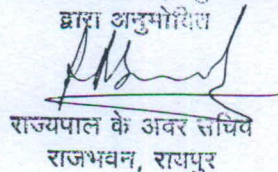 द्वारा अनुमोदित
राज्यपाल के अवर सचिव
राजभवन, रायपुर